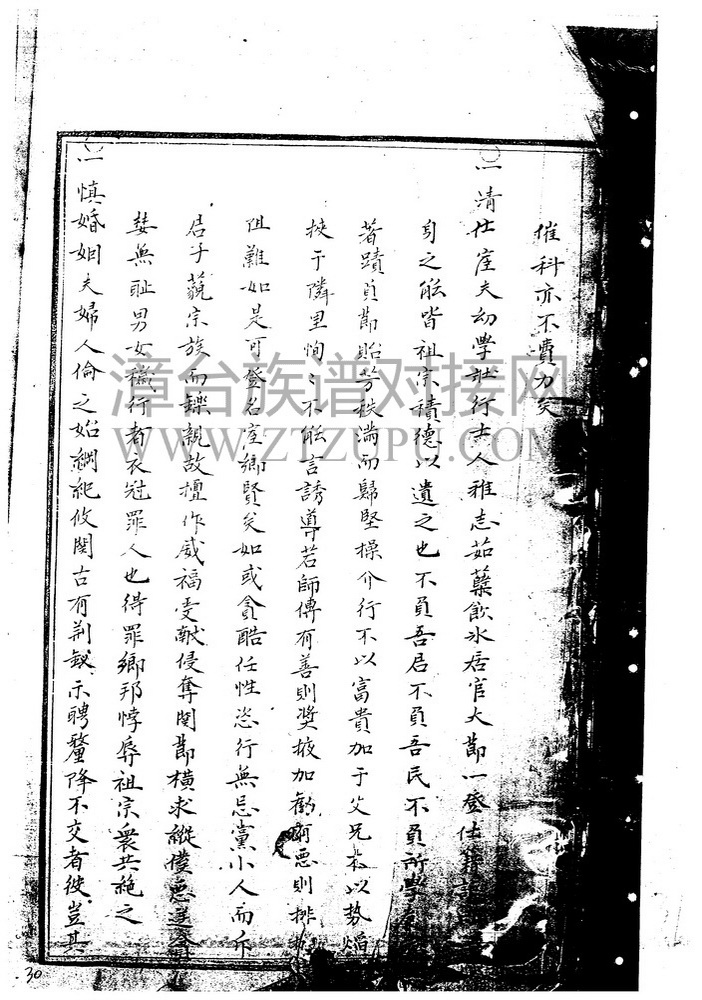 催科亦不費力矣
○一清仕崖夫幼學壯行士人雅志茹蘗飲氷居官大節一登仕
身之能皆祖宗積德以遺之也不負吾君不負吾民不負所學
著蹟貞節貽芳秩滿而歸堅操介行不以富貴加于父兄不以勢焰
挾于隣里恂〻不能言誘導若師傅有善則奨掖加勸有惡則排
阻難如是可登名崖鄉賢矣如或貪酷任性恣行無忌黨小人而斥
君子藐宗族而鑠親故擅作威福受献侵奪関節橫求縱僕惠
婪無耻男女穢行者衣冠罪人也得罪鄉邦悖辱祖宗衆共絶之
○一慎婚姻夫婦人倫之始綱紀攸関古有荆釵示聘釐降不交者彼豈其
漳台族谱对接网
WWW.ZTZUPU.COM
30